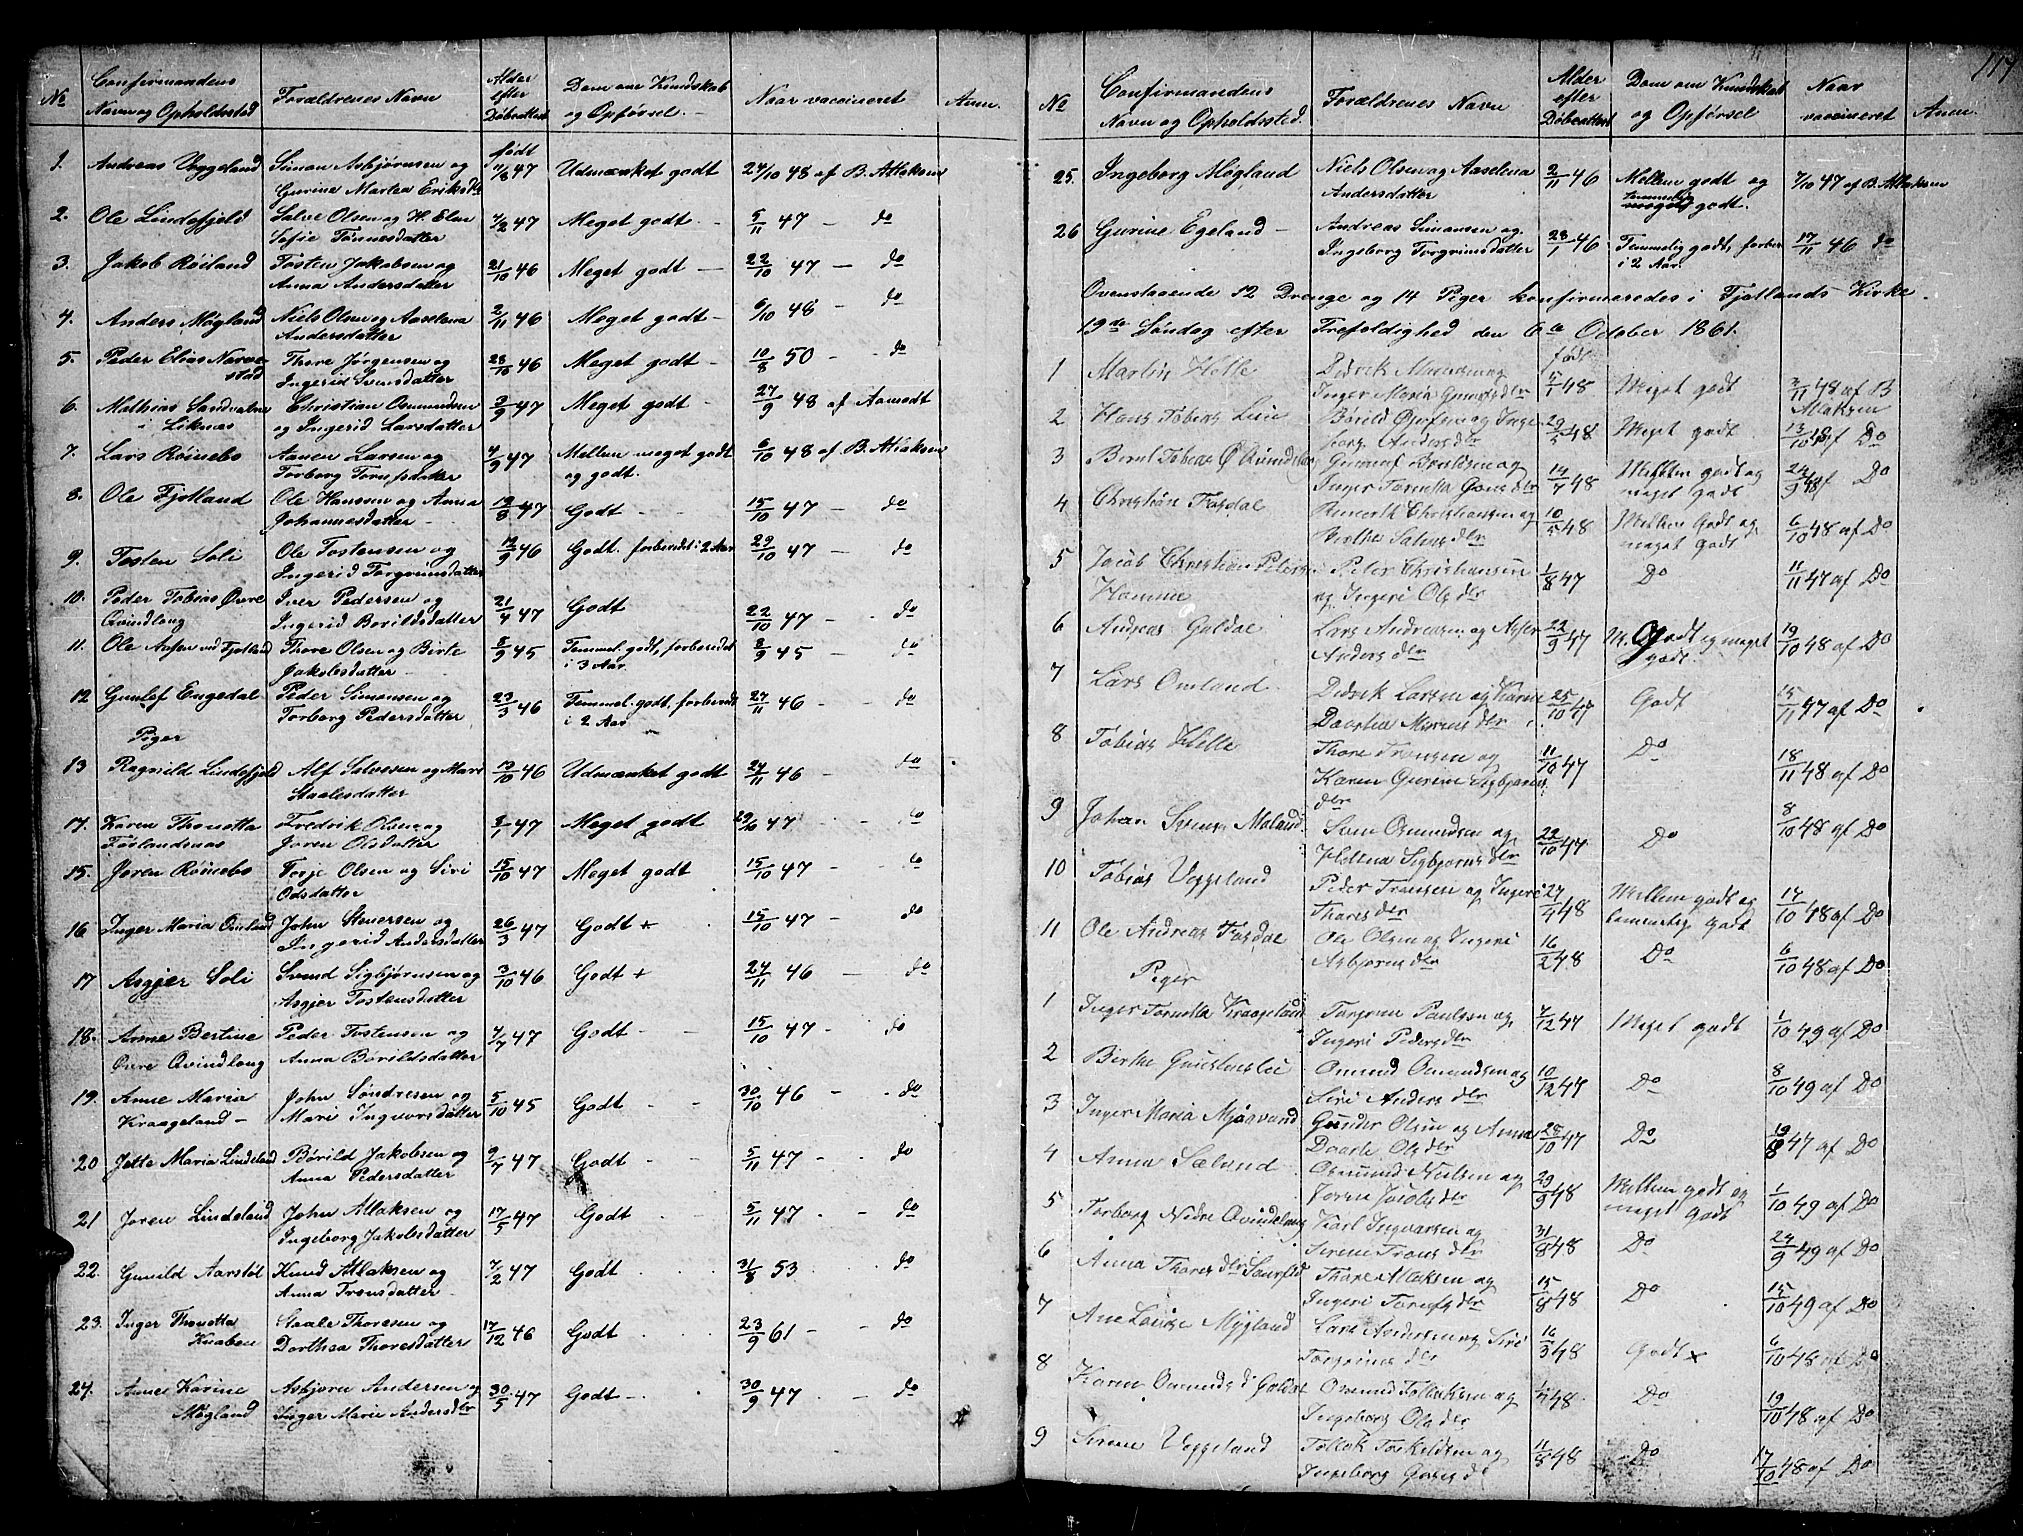 No | Confirmandens Navn og Opholdssted | Forældrenes Navn | Alder efter Døbeattest | Dom om Kundskab og Opførsel. | Naar vaccineret | Anm.
født
1. | Andreas Veggeland | Simon Asbjørnsen og Gurine Martea Eriksdtr | 11/8 47 | Udmærket godt | 24/10 48 af B. Atlaksen
2. | Ole Lindefjeld | Salve Olsen og H. Elen Sofie Tønnesdatter | 7/2 47 | Meget godt - | 5/11 47 - do
3. | Jakob Røiland | Tosten Jakobsen og Anna Andersdatter | 21/10 46 | Meget godt - | 22/10 47 - do
4. | Anders Møgland | Niels Olsen og Aaselena Andersdatter | 2/11 46 | Meget godt - | 6/10 48 do
5. | Peder Elias Narvestad | Thore Jørgensen og Ingerid Svensdatter | 28/10 46 | Meget godt - | 10/8 50 - do
6. | Mathias Sandvatne i Liknæs | Christian Osmundsen og Ingerid Larsdatter | 3/9 47 | Meget godt - | 27/9 48 af Aamodt
7. | Lars Røinebo | Aanen Larsen og Torborg Tornfsdatter | 4/9 47 | Mellem meget godt og godt. | 6/10 48 af B. Atlaksen
8. | Ole Fjotland | Ole Hansen og Anna Johannesdatter - | 19/8 47 | Godt - | 15/10 47 - do
9. | Tosten Soli | Ole Tostensen og Ingerid Torgrimsdatter | 12/9 46 | Godt. forberedt i 2 Aar | 29/10 47 - do
10. | Peder Tobias Øvre Qvindlong | Iver Pedersen og Ingerid Borildsdatter | 21/4 47 | Godt | 22/10 47 - do
11. | Ole ved Fjotland | Thore Olsen og Birte Jakobsdatter | 8/9 45 | Temmel. godt, forberedet i 3 Aar. | 8/9 45 - do
12 | Gunlef Engedal | Peder Simonsen og Torborg Pedersdatter | 23/3 46 | Temmel. godt, forberedt i 2 Aar | 27/11 46 - do
Piger
13 | Ragnild Lindefjeld | Alf Salvesen og Mari Staalesdatter | 13/10 46 | Udmærket godt | 24/11 46 - do
14. | Karen Thonetta Førlandsnæs | Fredrik Olsen og Joren Olsdatter | 8/1 47 | Meget godt | 29/10 47 - do
15. | Joren Røinebo | Terje Olsen og Siri Odsdatter | 15/10 47 | Meget godt | 15/10 47 - do
16 | Inger Maria Omland | John Stenersen og Ingerid Andersdatter | 26/3 47 | Godt + | 15/10 47 - do
17 | Asgjer Soli | Svend Sigbjørnsen og Asgjer Tostensdatter | 3/10 46 | Godt + | 24/11 46 - do
18. | Anne Bertine Øvre Qvindlong | Peder Tostensen og Anna Børildsdatter | 7/7 47 | Godt - | 15/10 47 - do
19. | Anne Maria Kraageland - | John Søndresen og Mari Ingvorsdatter | 5/10 45 | Godt - | 30/10 46 - do
20 | Jette Maria Lindeland | Børild Jakobsen og Anna Pedersdatter | 9/7 47 | Godt - | 5/11 47 - do
21 | Joren Lindeland | John Atlaksen og Ingeborg Jakobsdatter | 17/5 47 | Godt | 5/11 47 - do
22. | Gunild Aarstøl | Knud Atlaksen og Anna Tronsdatter - | 7/2 47 | Godt | 31/8 53 do
23. | Inger Thonetta Knaben | Staale Thoresen og Dorthea Thoresdatter | 17/12 46 | Godt | 23/9 61 - do
24. | Anne Karine Møgland | Asbjørn Andersen og Inger Marie Andersdtr | 30/5 47 | Godt - | 30/9 47 - do
119
No | Confirmandens Navn og Opholdssted. | Forældrenes Navn | Alder efter Døbeattest | Dom om Kundskab og Opførsel | Naar vaccineret | Anm.
25. | Ingeborg Møgland | Niels Olsen og Aaselena Andersdatter | 2/11 46 | Mellem godt og temmelig godt. | 7/10 47 af B. Atlaksen
26 | Gurine Egeland - | Andreas Simonsen og Ingeborg Torgrimsdatter | 28/1 46 | Temmelig godt, forber. i 2 Aar. | 17/11 46 do
Ovenstaaende 12 Drenge og 14 Piger konfirmeredes i Fjotlands Kirke
19de Søndag efter Trefoldighed den 6te October 1861.
født
1 | Martin Helle | Didrik Martinsen og Inger Maria dtr | 48 | Meget godt | 3/11 48 af B Atlaksen
2 | Hans Tobias Lein | Børild og Ingeborg Anders dtr | 29/5 48 | Meget godt | 13/10 48 af Do
3 | Bernt Tobias Ø Qvindlog | Gunnuf Boruldsen og Inger Tornetta dtr | 14/7 48 | Mellem godt og meget godt | 24/9 48 af Do
4 | Christian Fosdal | Christiansen og Berthe Salves dtr | 10/5 48 | Mellem Godt og meget Godt | 6/10 48 af Do
5 | Jacob Christian Peters. Homme | Peter Christiansen og Ingeri Ols dtr | 1/8 47 | Do | 11/11 47 af Do
6 | Andreas Guldal | Lars Andreasen og Anders dtr | 22/9 47 | M. Godt og meget godt. | 19/10 48 af Do
7 | Lars Omland | Didrik Larsen og Karen Dorthea dtr | 25/10 47 | Godt | 15/11 47 af Do
8 | Tobias Helle | Thore Tronsen og Karen Gurine Sigbjørns dtr | 11/10 47 | Do | 18/11 48 af Do
9 | Johan Svens. Moland | Sven Osmundsen og Hellena Sigbjørns dtr | 22/10 47 | Do | 8/10 48 af Do
10 | Tobias Veggeland | Peder Tronsen og Ingeri Thores dtr | 27/4 48 | Mellem godt og temmelig godt | 14/10 48 af Do
11 | Ole Andreas Fosdal | Ole Olsen og Ingeri Asbjørns dtr | 16/2 48 | Do | 6/10 48 af Do
Piger
1 | Inger Tornetta Kraageland | Torjom Paulsen og Ingeri Peders dtr | 7/12 47 | Meget godt | 1/10 49 af Do
2 | Birthe | Omund Omundsen og Siri Anders dtr | 10/12 47 | Do | 8/10 49 af Do
3 | Inger Maria Mjaavand | Gunder Olsen og Anna Daarte Ols dtr | 28/10 47 | Do | 19/8 47 af Do
4 | Anna Sæland | Osmund Nielsen og Joren Jacobs dtr | 29/9 48 | Mellem godt og meget Godt | 1/10 49 af Do
5 | Torborg Nedre Qvindlong | Karl Ingvarsen og Sirene Trons dtr | 31/8 48 | Do | 24/9 49 af Do
6 | Anna Thores dtr | Thore Atlaksen og Ingeri dtr | 15/8 48 | Do | 15/10 49 af Do
7 | Ane Louise Mygland | Lars Andersen og Siri Torgrims dtr | 16/3 48 | Godt x | 6/10 48 af Do
8 | Karen Osmunds d Guldal | Osmund Tollaksen og Ingeborg Ols dtr | 48 | Do | 19/10 48 af Do
9 | Sirene Veggeland | Tollak Torkeldsen og Ingeborg dtr | 11/8 48 | Do | 17/10 48 af Do